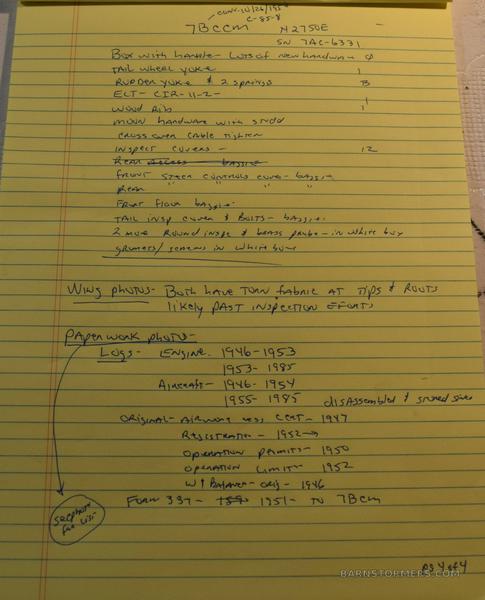 CONV. 10/26/195
C-85-8
7BCCM N2750E
SN 7AC-6331
Box with handle - Lots of new hardware
TAIL WHEEL YOKE 1
RUDDER YOKE & 2 springs 3
ELT - CIR-11-2- 1
WOOD Rib 1
hardware with
CROSS OVER CABLE
INSPECT COVERS - 12
REAR ACCESS baggie
FRONT STEER CONTROLS COVER - baggie
REAR " " "
FRONT FLOOR baggie
TAIL INSP COVER & BOLTS - baggie
2 more Round inspe & brass - in White box
GROMETS/SCREWS in White box
Wing photos - Both have TORN fabric AT Tips & ROOTS
likely PAST INSPECTION EFFORTS
PAPERWORK photo -
Logs - ENGINE 1946-1953
1953-1985
AIRCRAFT - 1946-1954
1955-1985 disAssembled & stored since
ORIGINAL - AIRWORTHINESS CERT - 1947
REGISTRATION - 1952
OPERATION PERMITS - 1950
OPERATION LIMIT - 1952
WT BALANCE - ORIG - 1946
FORM 337 - 1951 - TO 7BCM
see photo
for list
PG 4 of 4
BARNSTORMERS.COM